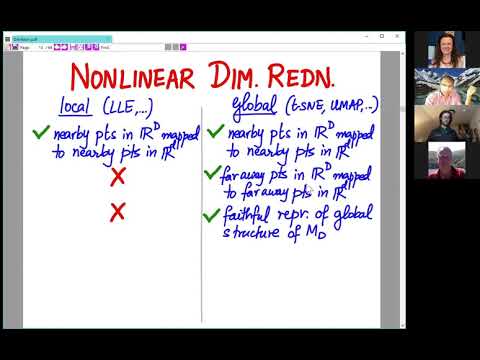 NONLINEAR DIM. REDN.
local (LLE,...)
nearby pts in ℝᴰ mapped
to nearby pts in ℝᵈ
global (t-SNE, UMAP,...)
nearby pts in ℝᴰ mapped
to nearby pts in ℝᵈ
far away pts in ℝᴰ mapped
to far away pts in ℝᵈ
faithful repr. of global
structure of M_D